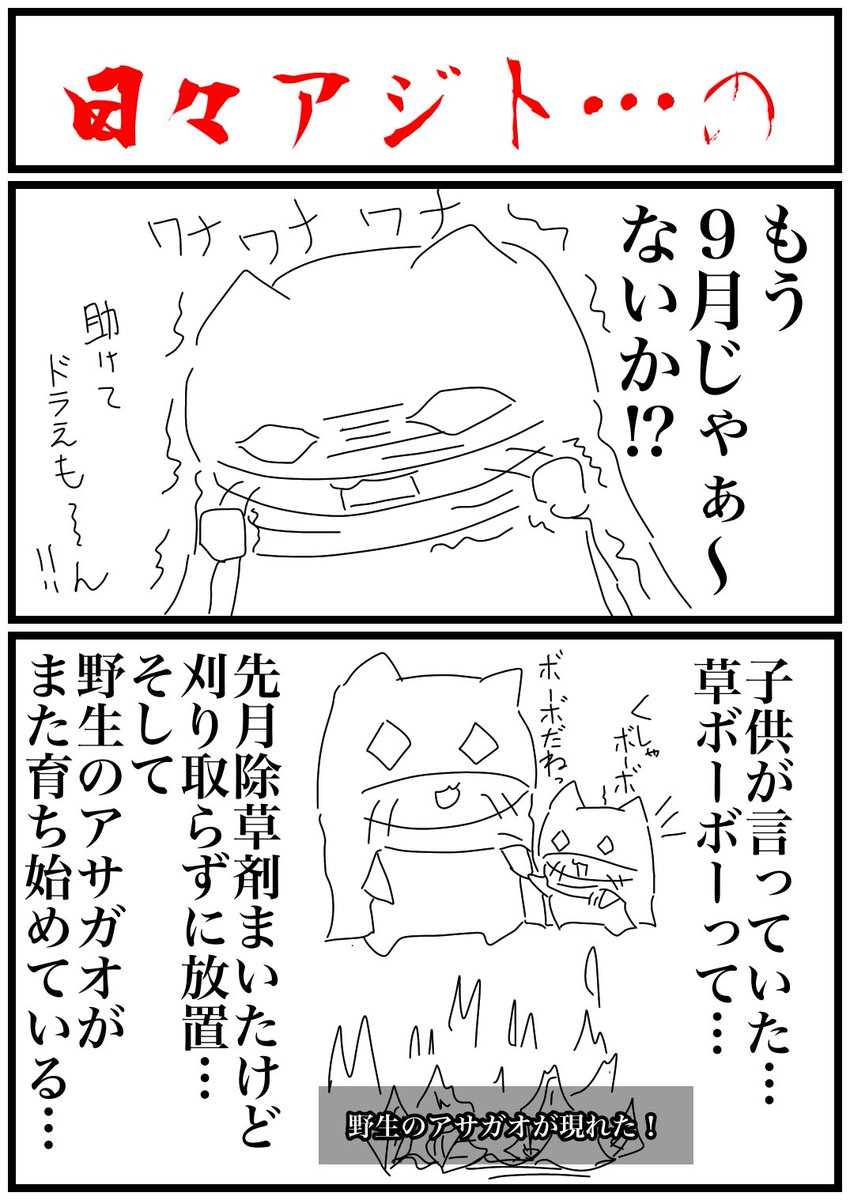 日々アジト…の
もう
９月じゃぁ～
ないか!?
ワナワナワナ
助けて
ドラえも～ん
!!
子供が言っていた…
草ボーボーって…
くしゃ
ボーボ
ボーボだねっ
先月除草剤まいたけど
刈り取らずに放置…
そして
野生のアサガオが
また育ち始めている…
野生のアサガオが現れた！